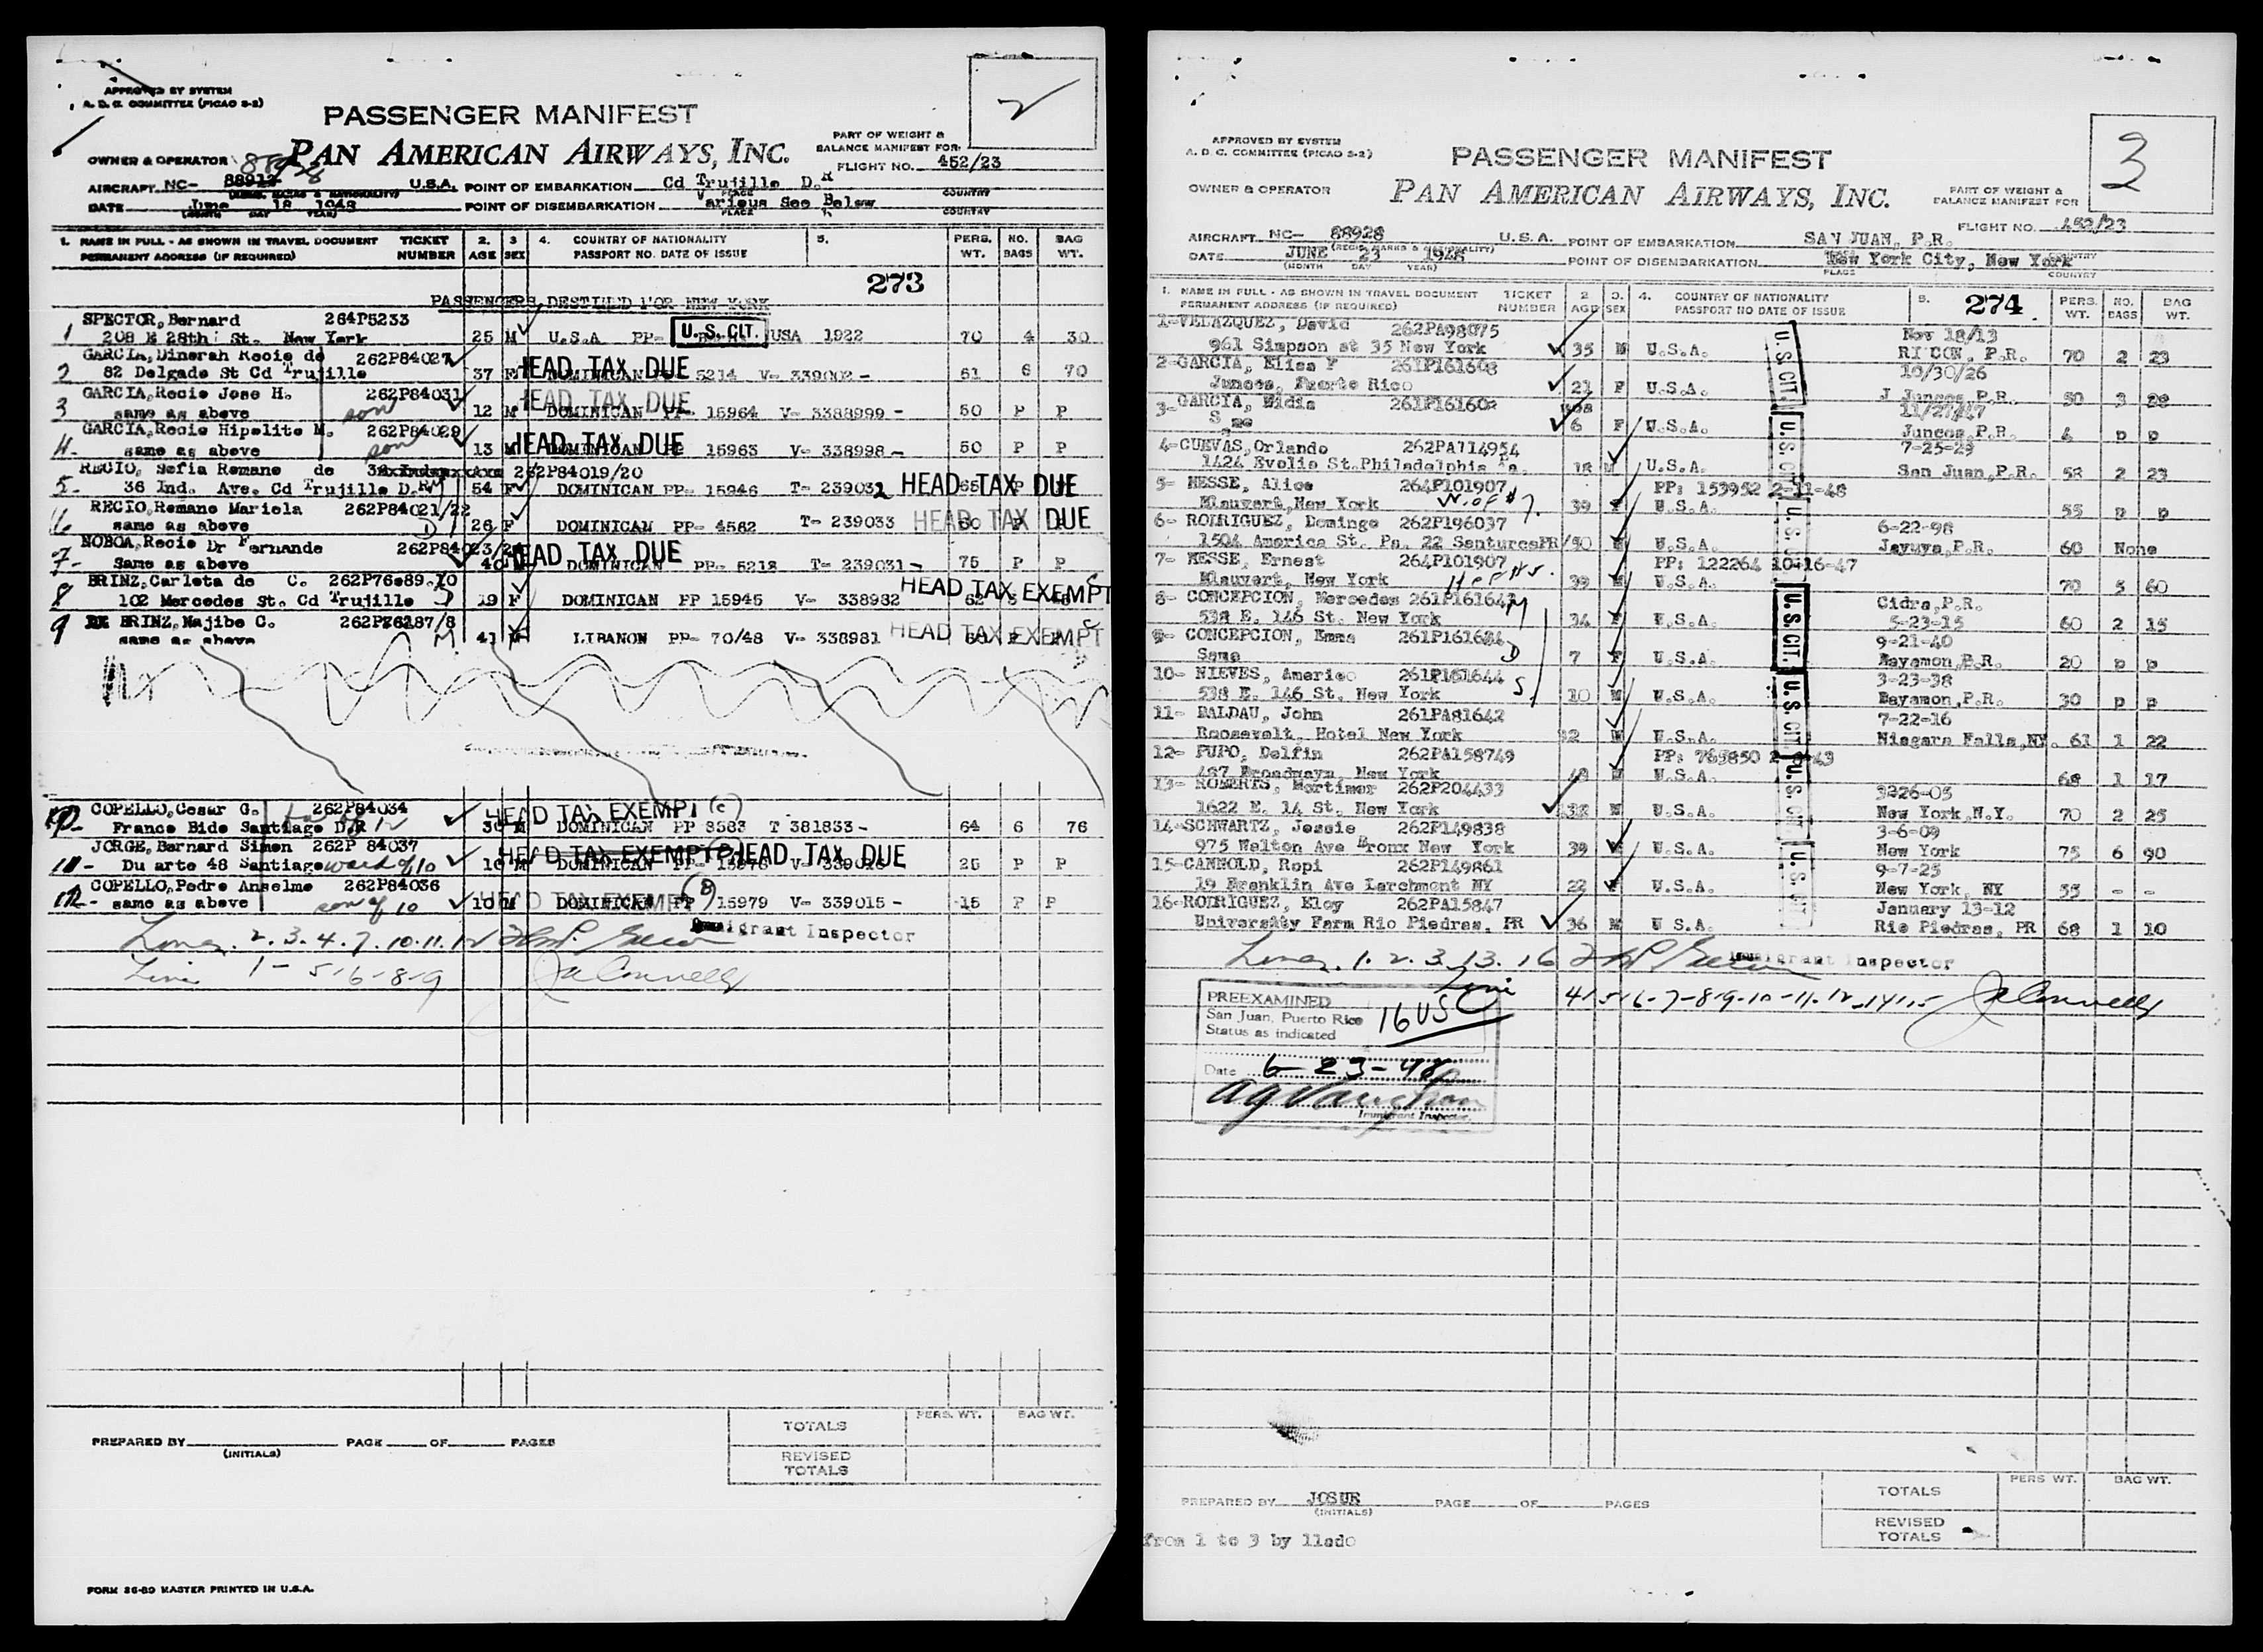 APPROVED BY SYSTEM
A. D. C. COMMITTEE (PICAO S-2)
2
PASSENGER MANIFEST
PAN AMERICAN AIRWAYS, INC.
PART OF WEIGHT &
BALANCE MANIFEST FOR
FLIGHT NO. 452/23
OWNER & OPERATOR
AIRCRAFT NC- U.S.A. POINT OF EMBARKATION Cd Trujillo D.R
DATE June 18 1948 POINT OF DISEMBARKATION Various See Below
(MONTH DAY YEAR) PLACE COUNTRY
1. NAME IN FULL - AS SHOWN IN TRAVEL DOCUMENT TICKET 2. 3 4. COUNTRY OF NATIONALITY 5. PERS. NO. BAG
PERMANENT ADDRESS (IF REQUIRED) NUMBER AGE SEX PASSPORT NO. DATE OF ISSUE WT. BAGS WT.
273
PASSENGERS DESTIN'D FOR NEW YORK
SPECTOR, Bernard 264P5233
1 208 E 28th St. New York 25 M U.S.A PP- U.S. CIT. USA 1922 70 4 30
GARCIA, Dinorah Recio de 262P84027
2 82 Delgado St Cd Trujillo 37 F HEAD TAX DUE DOMINICAN 5214 V- 339002 - 61 6 70
GARCIA, Recio Jose H. 262P84031
3 same as above son 12 M HEAD TAX DUE DOMINICAN PP- 15964 V- 3388999 - 50 P P
GARCIA, Recio Hipolito M. 262P84029
4- same as above son 13 M HEAD TAX DUE DOMINICAN 15963 V- 338998 - 50 P P
RECIO, Sofia Romano de 262P84019/20
5- 36 Ind. Ave. Cd Trujillo D.R M 54 F DOMINICAN PP- 15946 T- 239032 HEAD TAX DUE 65 P
RECIO, Romano Mariola 262P84021/22
6 same as above D 26 F DOMINICAN PP- 4562 T- 239033 HEAD TAX DUE
NOBOA, Recio Dr Fernando
7- Same as above 40 HEAD TAX DUE DOMINICAN PP- 6218 T- 239031 - 75 P P
BRINZ, Carlota de C.
8 102 Mercedes St. Cd Trujillo 19 F DOMINICAN PP 15945 V- 338982 HEAD TAX EXEMPT
9 BRINZ, Najibe C.
same as above M 41 F LIBANON PP- 70/48 V- 338981 HEAD TAX EXEMPT
COPELLO, Cesar G. 262P84034
10- Franco Bido Santiago D.R HEAD TAX EXEMPT (c) DOMINICAN PP 8583 T 381833 - 64 6 76
JORGE, Bernard Simon 262P 84037
11- Du arte 48 Santiago ward of 10 HEAD TAX EXEMPT HEAD TAX DUE DOMINICAN 25 P P
COPELLO, Pedro Anselmo 262P84036
12- same as above son of 10 10 M HEAD TAX EXEMPT DOMINICAN PP 15979 V- 339015 - 15 P P
Immigrant Inspector
Lines 2. 3. 4. 7. 10. 11. 12
Line 1 - 5-6-8-9
TOTALS PERS. WT. BAG WT.
PREPARED BY PAGE OF PAGES
(INITIALS)
REVISED
TOTALS
FORM 36-80 MASTER PRINTED IN U.S.A.
APPROVED BY SYSTEM
A. D. C. COMMITTEE (PICAO S-2)
3
PASSENGER MANIFEST
OWNER & OPERATOR
PAN AMERICAN AIRWAYS, INC.
PART OF WEIGHT &
BALANCE MANIFEST FOR
FLIGHT NO. 452/23
AIRCRAFT NC- 88928 U.S.A. POINT OF EMBARKATION SAN JUAN, P.R.
DATE JUNE 23 1948 POINT OF DISEMBARKATION New York City, New York
(MONTH DAY YEAR) PLACE COUNTRY
1. NAME IN FULL - AS SHOWN IN TRAVEL DOCUMENT TICKET 2 3. 4. COUNTRY OF NATIONALITY 5. 274 PERS. NO. BAG
PERMANENT ADDRESS (IF REQUIRED) NUMBER AGE SEX PASSPORT NO DATE OF ISSUE WT. BAGS WT.
1-VELAZQUEZ, David 262PA98075 Nov 18/13
961 Simpson st 35 New York 35 M U.S.A. RINCON, P.R. 70 2 23
2-GARCIA, Elisa F 261P161603 10/30/26
Juncos, Puerto Rico 21 F U.S.A. Juncos, P.R. 50 3 28
3-GARCIA, Nidia 261P161602
6 F U.S.A. Juncos, P.R. 4 p p
4-CUEVAS, Orlando 262PA114954 7-25-29
1424 Evolio St. Philadelphia Pa. 18 M U.S.A. San Juan, P.R. 58 2 23
5- HESSE, Alice 264P101907 W. of #7. PP: 153952 2-11-48
Klauvert, New York 39 F U.S.A. 55 p p
6- RODRIGUEZ, Domingo 262P196037 6-22-98
1504 America St. Pa. 22 Santurce PR M U.S.A. Jayuya, P.R. 60 None
7- HESSE, Ernest 264P101907 PP: 122264 10-16-47
Klauvert, New York H of #5. 39 M U.S.A. 70 5 60
8- CONCEPCION, Mercedes M Cidra, P.R.
538 E. 146 St. New York 34 F U.S.A. 5-23-15 60 2 15
9- CONCEPCION, Emma D 9-21-40
Same 7 F U.S.A. Bayamon, P.R. 20 p p
10- NIEVES, Americo 261P161644 3-23-38
538 E. 146 St. New York S. 10 M U.S.A. Bayamon, P.R. 30 p p
11- BALDAU, John 261PA81642 7-22-16
Roosevelt, Hotel New York 32 M U.S.A. Niagara Falls, NY. 61 1 22
12- PUPO, Delfin 262PA158749 PP: 763850
487 Broadways, New York M U.S.A. 68 1 17
13- ROBERTS, Mortimer 262P204433
1622 E. 14 St. New York M U.S.A. New York, N.Y. 70 2 25
14-SCHWARTZ, Jessie 262P149838 3-6-09
975 Walton Ave Bronx New York 39 U.S.A. New York 75 6 90
15-CANNOLD, Ropi 262P149861 9-7-25
19 Franklin Ave Larchmont NY 22 F U.S.A. New York, NY 55 - -
16-RODRIGUEZ, Eloy 262PA15847 January 13-12
University Farm Rio Piedras, PR 36 M U S.A. Rio Piedras, PR 68 1 10
U.S. CIT.
U.S. CIT.
U.S. CIT.
U.S. CIT.
U.S. CIT.
Lines 1. 2. 3. 13. 16 Immigrant Inspector
Line 4-5-6-7-8-9-10-11-12-14-15
PREEXAMINED
San Juan, Puerto Rico 16 USC
Status as indicated
Date 6-23-48
Immigrant Inspector
TOTALS PERS WT. BAG WT.
PREPARED BY JOSUE PAGE OF PAGES
(INITIALS)
REVISED
TOTALS
from 1 to 3 by lledo